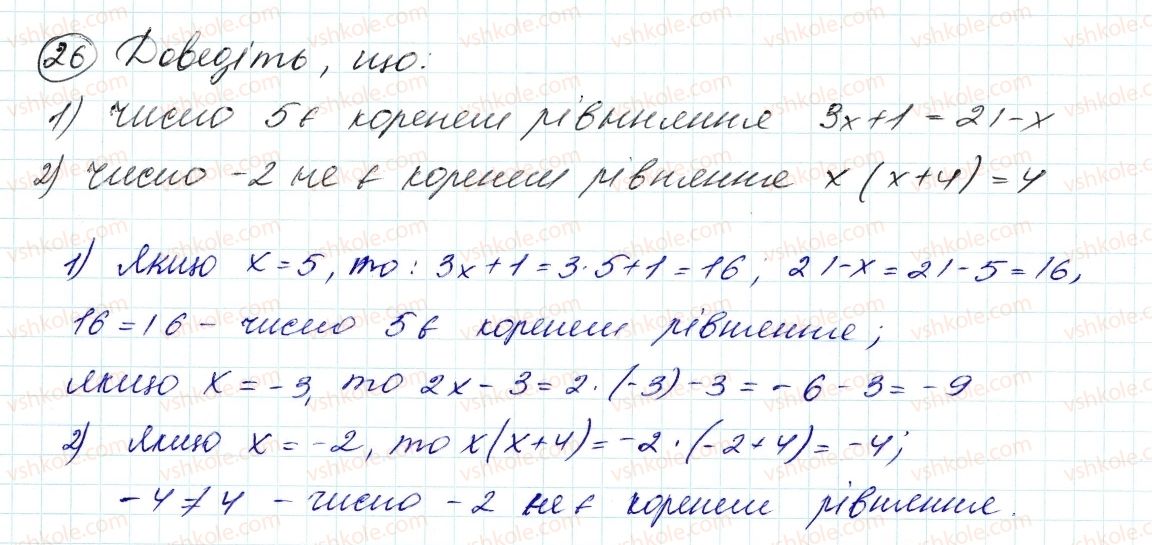 26 Доведіть, що:
1) число 5 є коренем рівняння 3x+1=21-x
2) число -2 не є коренем рівняння x(x+4)=4
1) якщо x=5, то: 3x+1=3·5+1=16; 21-x=21-5=16,
16=16 - число 5 є коренем рівняння;
якщо x=-3, то 2x-3=2·(-3)-3=-6-3=-9
2) якщо x=-2, то x(x+4)=-2·(-2+4)=-4;
-4≠4 - число -2 не є коренем рівняння.
vshkole.com